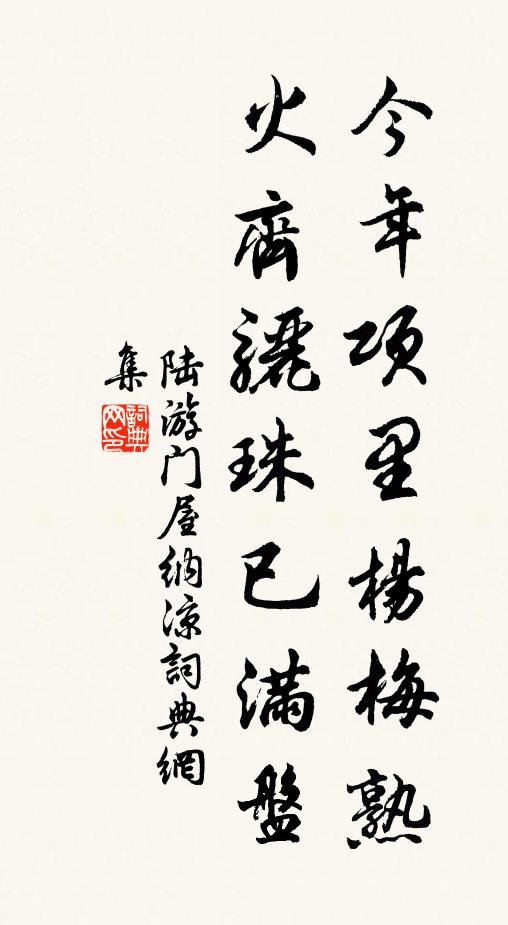 今年項里楊梅熟
火齊驪珠已滿盤
陸游門屋納涼詞典網
集
詞典
网印